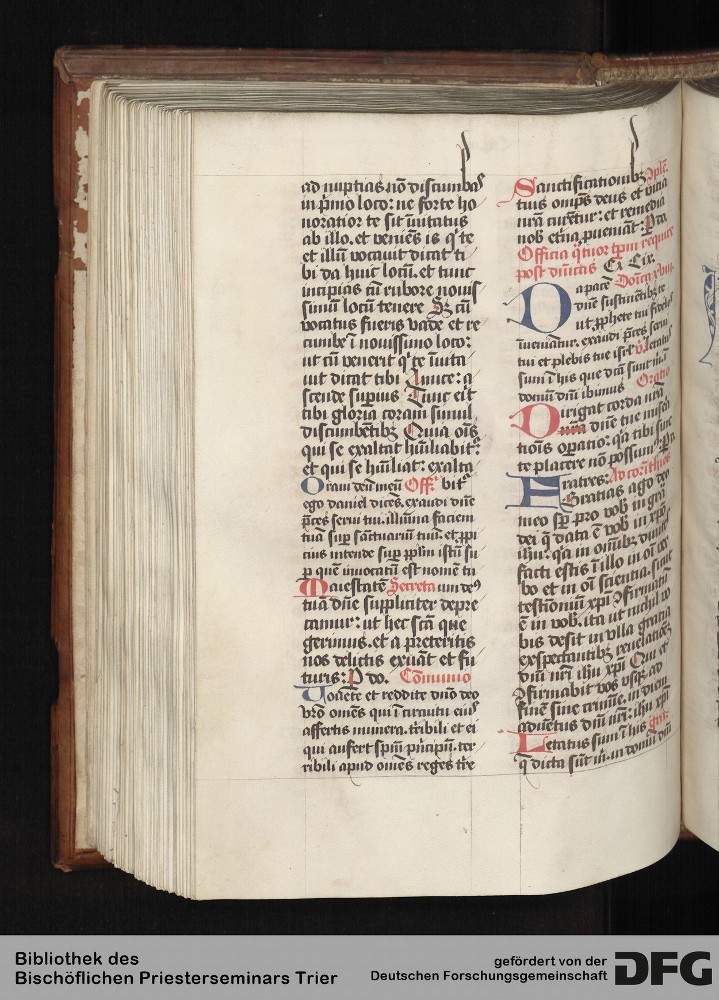 ad nuptias nō discumbas
in p̄mo loco: ne forte ho
noratior te sit inuitatus
ab illo. et veniēs is q̇ te
et illū vocauit dicat ti
bi da huic locū. et tunc
incipias cū rubore nouis
simū locū tenere Sꝫ cū
vocatus fueris vade et re
cumbe ī nouissimo loco:
ut cū venerit q̇ te īuita
uit dicat tibi Amice: a
scende suꝑius Tunc eīt
tibi gloria coram simul
discumbētibꝫ Quia oīs
qui se exaltat hūiliabit᷑:
et qui se hūiliat: exalta
Oram deū meū Off. bit᷑
ego daniel dicēs. exaudi dn̄e
p̄ces serui tui. illumīa faciem
tuā suꝑ sanctuariū tuū: et ꝓpi
cius intende suꝑ pplm istū su
ꝑ quē inuocatū est nomē tu
Maiestatē Secreta um deꝰ
tuā dn̄e suppliciter depre
camur: ut hec sc̄ā que
gerimus. et a preteritis
nos delictis exuāt et fu
turis: P do. Cōmunio
Uouete et reddite dn̄o deo
vr̄o omēs qui ī circuitu eiꝰ
affertis munera. tribili et ei
qui aufert spīm pn̄cipū. ter
ribili apud omēs reges tr̄e
Sanctificationibꝫ 9plē.
tuis omp̄s deus et vicia
nr̄a curētur: et remedia
nob et̄na ꝓueniāt: P do
Officia q̄tuor tp̄m require
post dn̄icas
Da pacē Domca xviij
dn̄e sustinētibꝫ te
ut ꝓphete tui fideles
inueniātur. exaudi p̄ces serui
tui et plebis tue isrl̄ V̄. Letatus
sum ī his que dcā sunt m̄
domū dn̄i ibimus Oratio
Dirigat corda nr̄a
dn̄e tue misera
tiōis oꝑatio: q̇a tibi sine
te placere nō possumꝰ: P
Fratres: Ad corinthios
Gratias ago deo
meo sꝑ pro vob in grā
dei q̄ data ē vob in xpō
ihū: q̇a in omībꝫ diuites
facti estis ī illo in oī ver
bo et in oī scientia. sicut
testimōiū xpī 9firmatū
ē in vob. ita ut nichil vo
bis desit in vlla gratia
exspectantibꝫ reuelationē
dn̄i nr̄i ihu xpī Qui et
9firmabit vos vsqꝫ ad
finē sine crimīe. in diem
aduētus dn̄i nr̄i: ihu xpī
Letatus sum ī his gr̄.
q̄ dicta sūt m̄ in domū dn̄i
Bibliothek des
Bischöflichen Priesterseminars Trier
gefördert von der
Deutschen Forschungsgemeinschaft
DFG